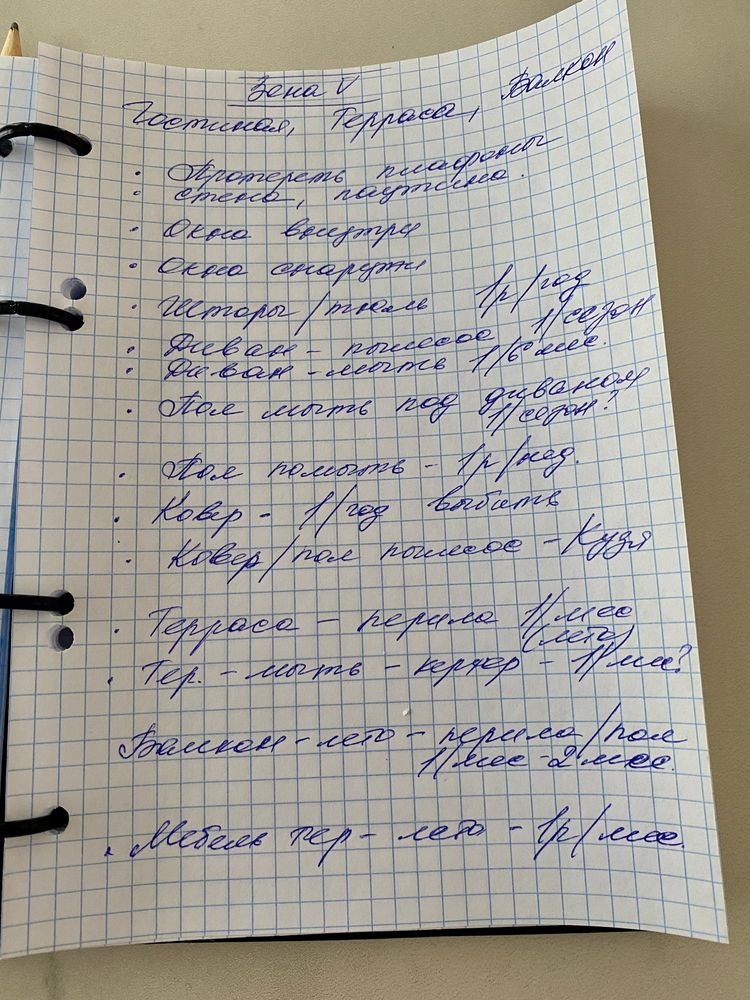 Зона V
Гостиная, Терраса, Балкон
· Протереть плафоны
· стена, паутина.
· Окна внутри
· Окна снаружи
· Шторы/тюль 1р/год
· Диван - пылесос 1/сезон
· Диван - мыть 1/6 мес.
· Пол мыть под диваном
1/сезон?
· Пол помыть - 1р/нед.
· Ковер - 1/год выбить
· Ковер/пол пылесос - Кузя
· Терраса - перила 1/мес
(лето)
· Тер. - мыть - керхер - 1/мес?
Балкон - лето - перила/пол
1/мес - 2 мес.
· Мебель тер - лето - 1р/мес.